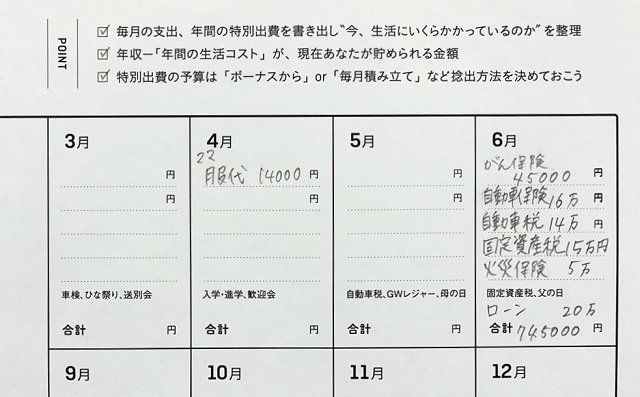 POINT
毎月の支出、年間の特別出費を書き出し“今、生活にいくらかかっているのか”を整理
年収ー「年間の生活コスト」が、現在あなたが貯められる金額
特別出費の予算は「ボーナスから」or「毎月積み立て」など捻出方法を決めておこう
3月
円
円
車検、ひな祭り、送別会
合計 円
4月
22
服代 14000 円
円
入学・進学、歓迎会
合計 円
5月
円
円
自動車税、GWレジャー、母の日
合計 円
6月
がん保険
45000 円
自動車保険16万 円
自動車税 14万 円
固定資産税15万円
火災保険 5万
固定資産税、父の日
ローン 20万
合計 745000 円
9月
10月
11月
12月